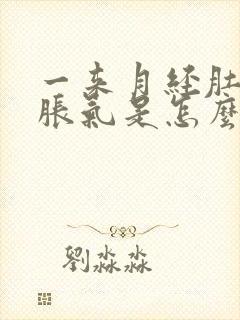 一来月经肚
脹氣是怎麼
劉淼淼